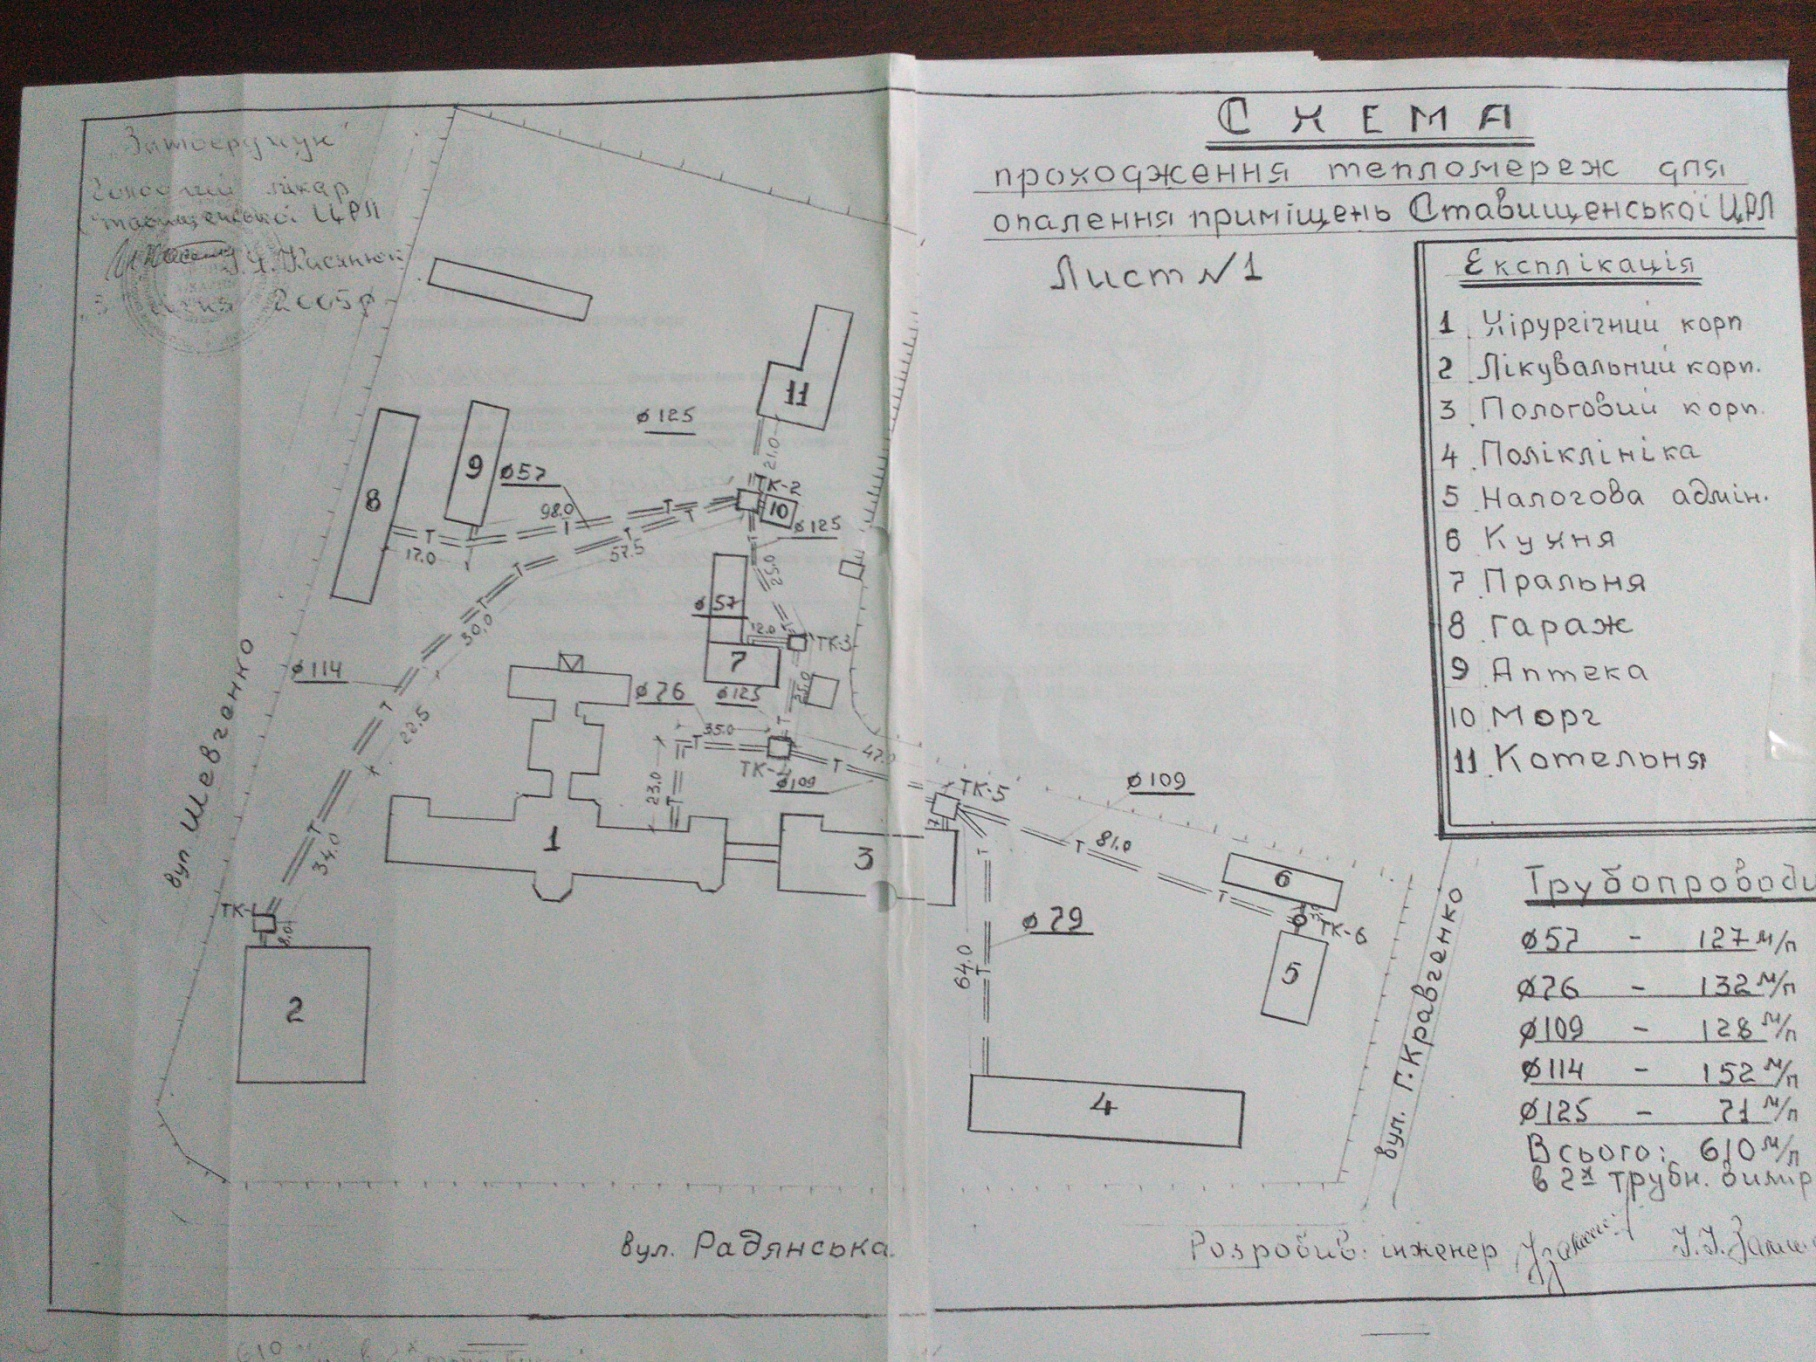 С Х Е М А
проходження тепломереж для
опалення приміщень Ставищенської ЦРЛ
Лист №1
"Затверджую"
Головний лікар
Ставищенської ЦРЛ
2005р
Експлікація
1 Хірургічний корп
2 Лікувальний корп.
3 Пологовий корп.
4 Поліклініка
5 Налогова адмін.
6 Кухня
7 Пральня
8 Гараж
9 Аптека
10 Морг
11 Котельня
Трубопроводи
ø57 - 127 м/п
ø76 - 132 м/п
ø109 - 128 м/п
ø114 - 152 м/п
ø125 - 71 м/п
Всього: 610 м/п
в 2х трубн. вимір
11
ø125
21.0
8
9
ø57
98.0
ТК-2
10
ø125
Т
Т
Т
Т
Т
17.0
57.5
Т
25.0
ø57
12.0
ТК-3
7
Т
30.0
ø114
ø76
ø125
25.0
Т
22.5
35.0
Т
Т
ТК-4
Т
47.0
ø109
23.0
Т
ТК-5
ø109
7
34.0
Т
1
3
81.0
Т
Т
6
ТК-1
8.0
ø79
64.0
Т
Т
3.0
ТК-6
5
2
4
вул Шевченко
вул. Г. Кравченко
вул. Радянська.
Розробив: інженер